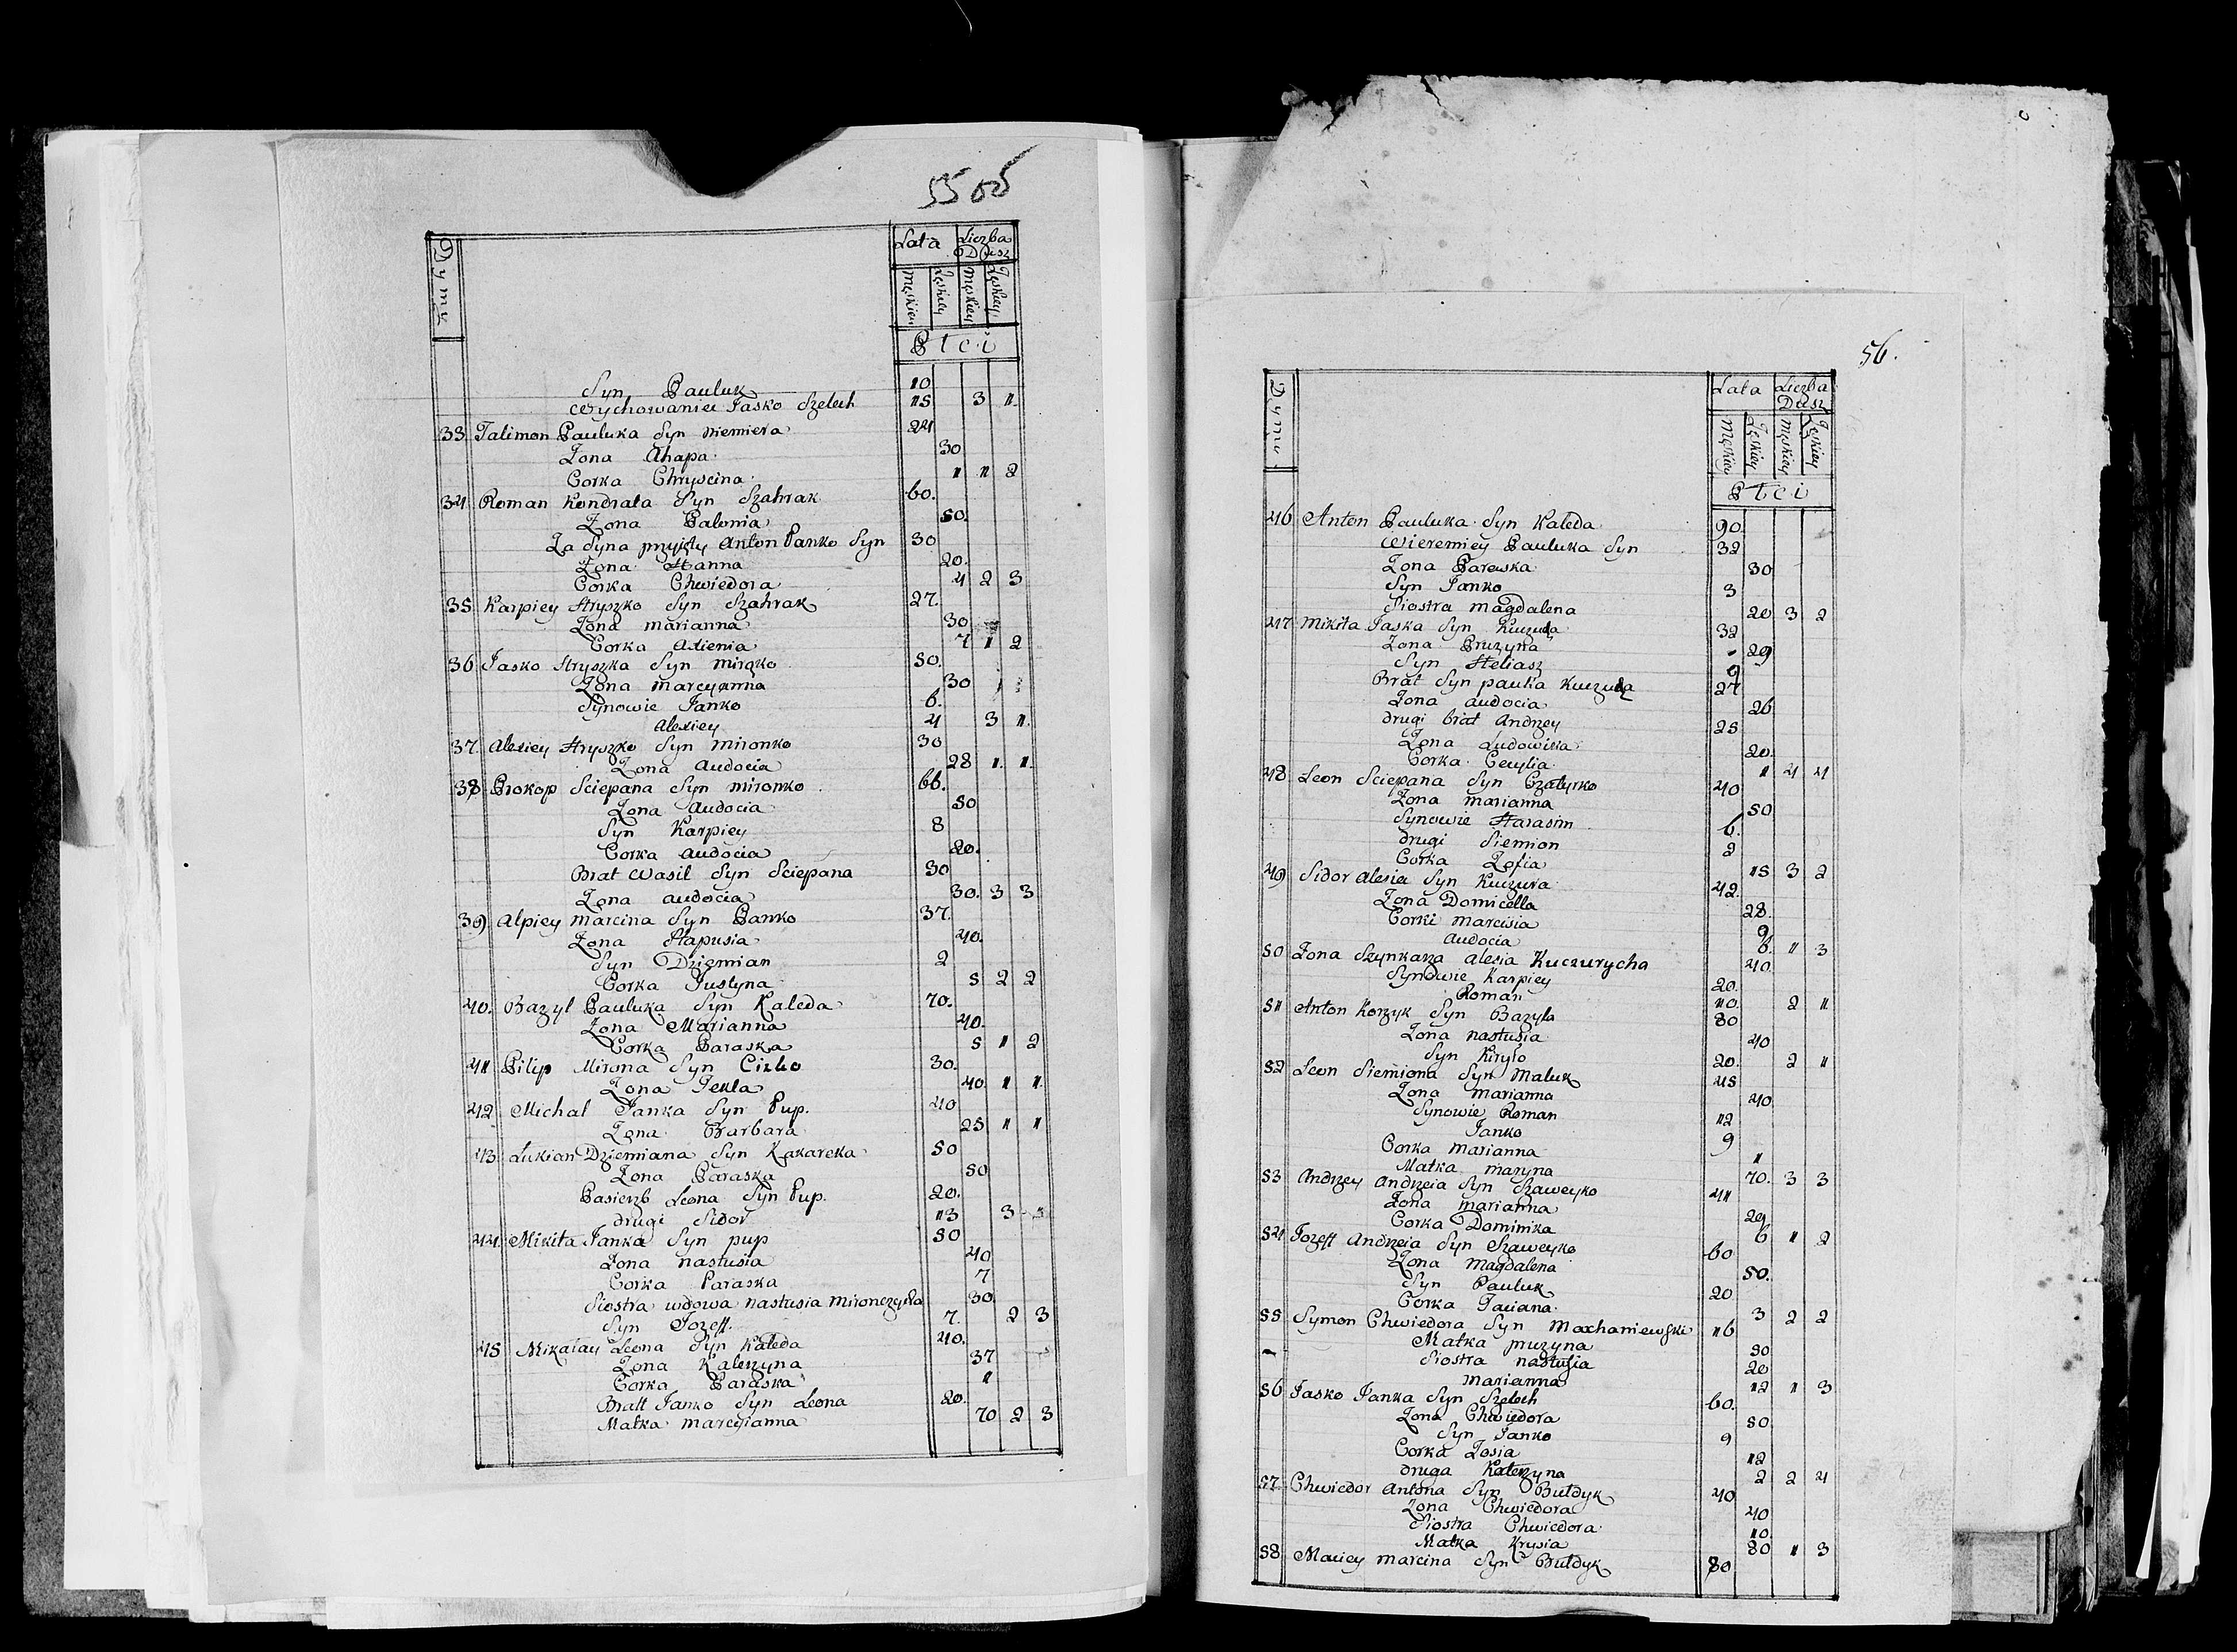 55 об
Dymu
Lata Liczba Dusz
Męskiey Żęskiey Męskiey Żęskiey
Płci
Syn Pauluk 10
Wychowaniec Jasko Szelech 15 3 1
33 Talimon Pauluka Syn Niemiera 24
Zona Ahapa 30
Corka Chryscina 1 1 2
34 Roman Kondrata Syn Szahrak 60.
Zona Palonia 50.
Za Syna przyięty Anton Panko Syn 30
Zona Hanna 20.
Corka Chwiedora 4 2 3
35 Karpiey Hryszko Syn Szahrak 27.
Zona Marianna 30
Corka Axienia 7 1 2
36 Jasko Hryszka Syn Mirąko 50.
Zona Marcyanna 30
Synowie Janko 6.
Alexiey 4 3 1.
37 Alexiey Hryszko Syn Mironko 30
Zona Audocia 28 1. 1.
38 Prokop Sciepana Syn Mironko 66.
Zona Audocia 50
Syn Karpiey 8
Corka Audocia 20.
Brat Wasil Syn Sciepana 30
Zona Audocia 30. 3 3
39 Alpiey Marcina Syn Panko 37.
Zona Hapusia 40.
Syn Dziemian 2
Corka Justyna 5 2 2
40. Bazyl Pauluka Syn Kaleda 70.
Zona Marianna 40.
Corka Paraska 5 1 2
41 Pilip Mirona Syn Cizko 30.
Zona Tekla 40 1 1.
42 Michal Janka Syn Pup. 40
Zona Barbara 25 1 1
43 Łukian Dziemiana Syn Kakareka 50
Zona Paraska 50
Pasierzb Leona Syn Pup. 20.
drugi Sidor 13 3 1
44. Mikita Janka Syn pup 50
Zona Nastusia 40
Corka Paraska 7
Siostra wdowa Nastusia Mironczycha 30
Syn Jozeff. 7. 2 3
45 Mikałay Leona Syn Kaleda 40.
Zona Katerzyna 37
Corka Paraska 1
Bratt Janko Syn Leona 20.
Matka Marcyianna 70 2 3
56.
Dymu
Lata Liczba Dusz
Męskiey Żęskiey Męskiey Żęskiey
Płci
46 Anton Pauluka Syn Kaleda 90
Wieremiey Pauluka Syn 32
Zona Parewska 30
Syn Janko 3
Siostra Magdalena 20 3 2
47 Mikita Jaska Syn Kuczura 32
Zona Pruzyna 29
Syn Heliasz 9
Brat Syn pauka Kuczura 27
Zona Audocia 26
drugi brat Andrzey 25
Zona Ludowika 20.
Corka Cecylia 1 4 4
48 Leon Sciepana Syn Czatyrko 40
Zona Marianna 50
Synowie Harasim 6.
drugi Siemion 2
Corka Zofia 15 3 2
49 Sidor Alexia Syn Kuczura 42.
Zona Domicella 28.
Corki Marcisia 9
Audocia 6. 1 3
50 Zona Szynkarza Alexia Kuczurycha 40.
Synowie Karpiey 20.
Roman 10. 2 1
51 Anton Korzyk Syn Bazyla 80
Zona Nastusia 40
Syn Kiryło 20. 2 1
52 Leon Siemiona Syn Maluk 45
Zona Marianna 40.
Synowie Roman 12
Janko 9
Corka Marianna 1
Matka Maryna 70. 3 3
53 Andrzey Andrzeia Syn Szaweyko 41
Zona Marianna 29
Corka Dominika 6 1 2
54 Jozeff Andrzeia Syn Szaweyko 60
Zona Magdalena 50.
Syn Pauluk 20
Corka Taciana 3 2 2
55 Symon Chwiedora Syn Machaniewski 16
Matka pruzyna 50
Siostra Nastusia 20
Marianna 12 1 3
56 Jasko Janka Syn Szelech 60.
Zona Chwiedora 50
Syn Janko 9
Corka Zosia 12
druga Katerzyna 2 2 4
57 Chwiedor Antona Syn Bułdyk 40
Zona Chwiedora 40
Siostra Chwiedora 10.
Matka Krysia 80 1 3
58 Maciey Marcina Syn Bułdyk 80